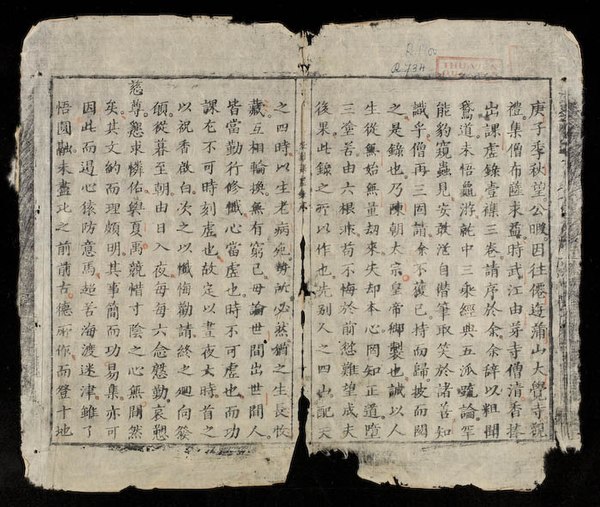 庚子季秋望公暇因往倦遊蒲山大覺寺觀
禮集僧布薩求益時武江由芽寺僧清香捧
出課虛錄壹襟三卷請序於余余辭以粗聞
鴑道未悟龜游乾中三乘經典五派疏論罕
能豹窺蠡見安敢泫自僭筆取笑於諸善知
識乎僧再三固請余不獲已持而歸披而閱
之是錄也乃陳朝太宗皇帝御製也誠以人
生從無始無量刼來失却本心罔知正道墮
三塗苦由六根非苟不悔於前愆難望成夫
後果此錄之所以作也先別人之四山配天
之四時以生老病死
藏互相輪換無有窮已毋論世間出世間人
皆當勤行修懺心當虛也時不可虛也而功
課尤不可時刻虛也故定以晝夜六時首之
以祝香啟白次之以懺悔勸請終之廻向發
願從暮至朝由日入夜每每六念慇勤哀懇
慈尊懇求憐佑與夏禹競惜寸陰之心無間然
矣其文約而理頗明其事簡而功易集亦可
因此而遏心猿防意馬超苦海渡迷津雖了
悟圓融未盡此之前前古德所作而登十地
R.1700
R.734